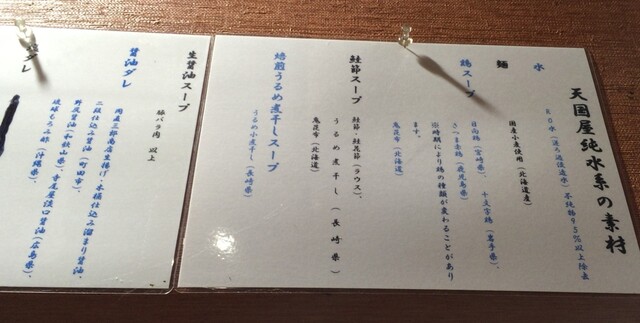 天国屋純水系の素材
水
RO水(逆ろ過浸透水)不純物95%以上除去
麺
国産小麦使用(北海道産)
鶏スープ
日向鶏(宮崎県)、十文字鶏(岩手県)、
さつま赤鶏(鹿児島県)
※時期により鶏の種類が変わることがあり
ます。
真昆布(北海道)
鮭節スープ
鮭節・鮭荒節(ラウス)、
うるめ煮干し(長崎県)
真昆布(北海道)
焙煎うるめ煮干しスープ
うるめ小煮干し(長崎県)
生醤油スープ
豚バラ肉 以上
醤油ダレ
二段仕込み醤油(町田市)、
野尻醤油(和歌山県)、寺尾屋淡口醤油(広島県)、
琉球もろみ酢(沖縄県)、
ダレ